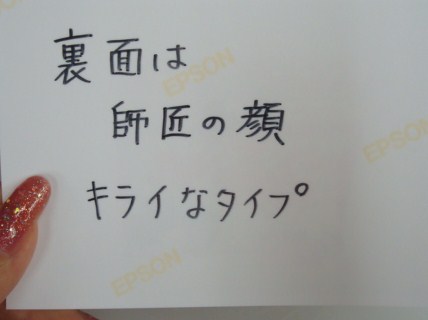 裏面は
師匠の顔
キライなタイプ
EPSON
EPSON
EPSON